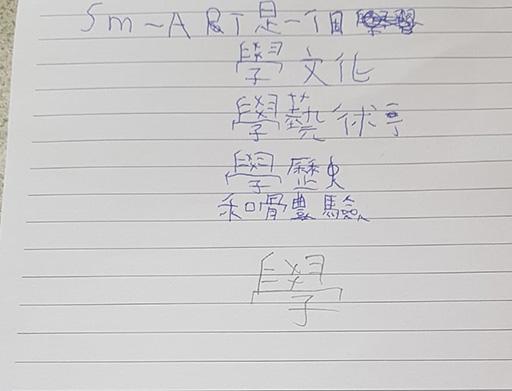 Sm-ART是一個
學文化
學藝術
學歷史
和體驗
學